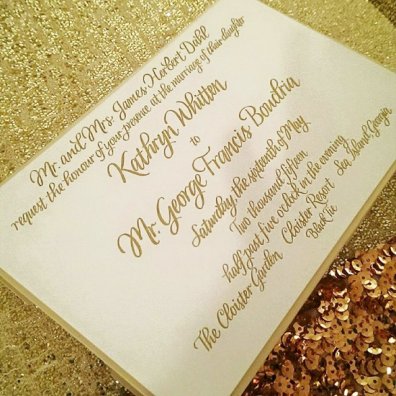 Mr. and Mrs. James Herbert Dahl
request the honour of your presence at the marriage of their daughter
Kathryn Whitten
to
Mr. George Francis Boudria
Saturday, the sixteenth of May
Two thousand fifteen
half past five o'clock in the evening
The Cloister Garden Cloister Resort Sea Island, Georgia
Black Tie